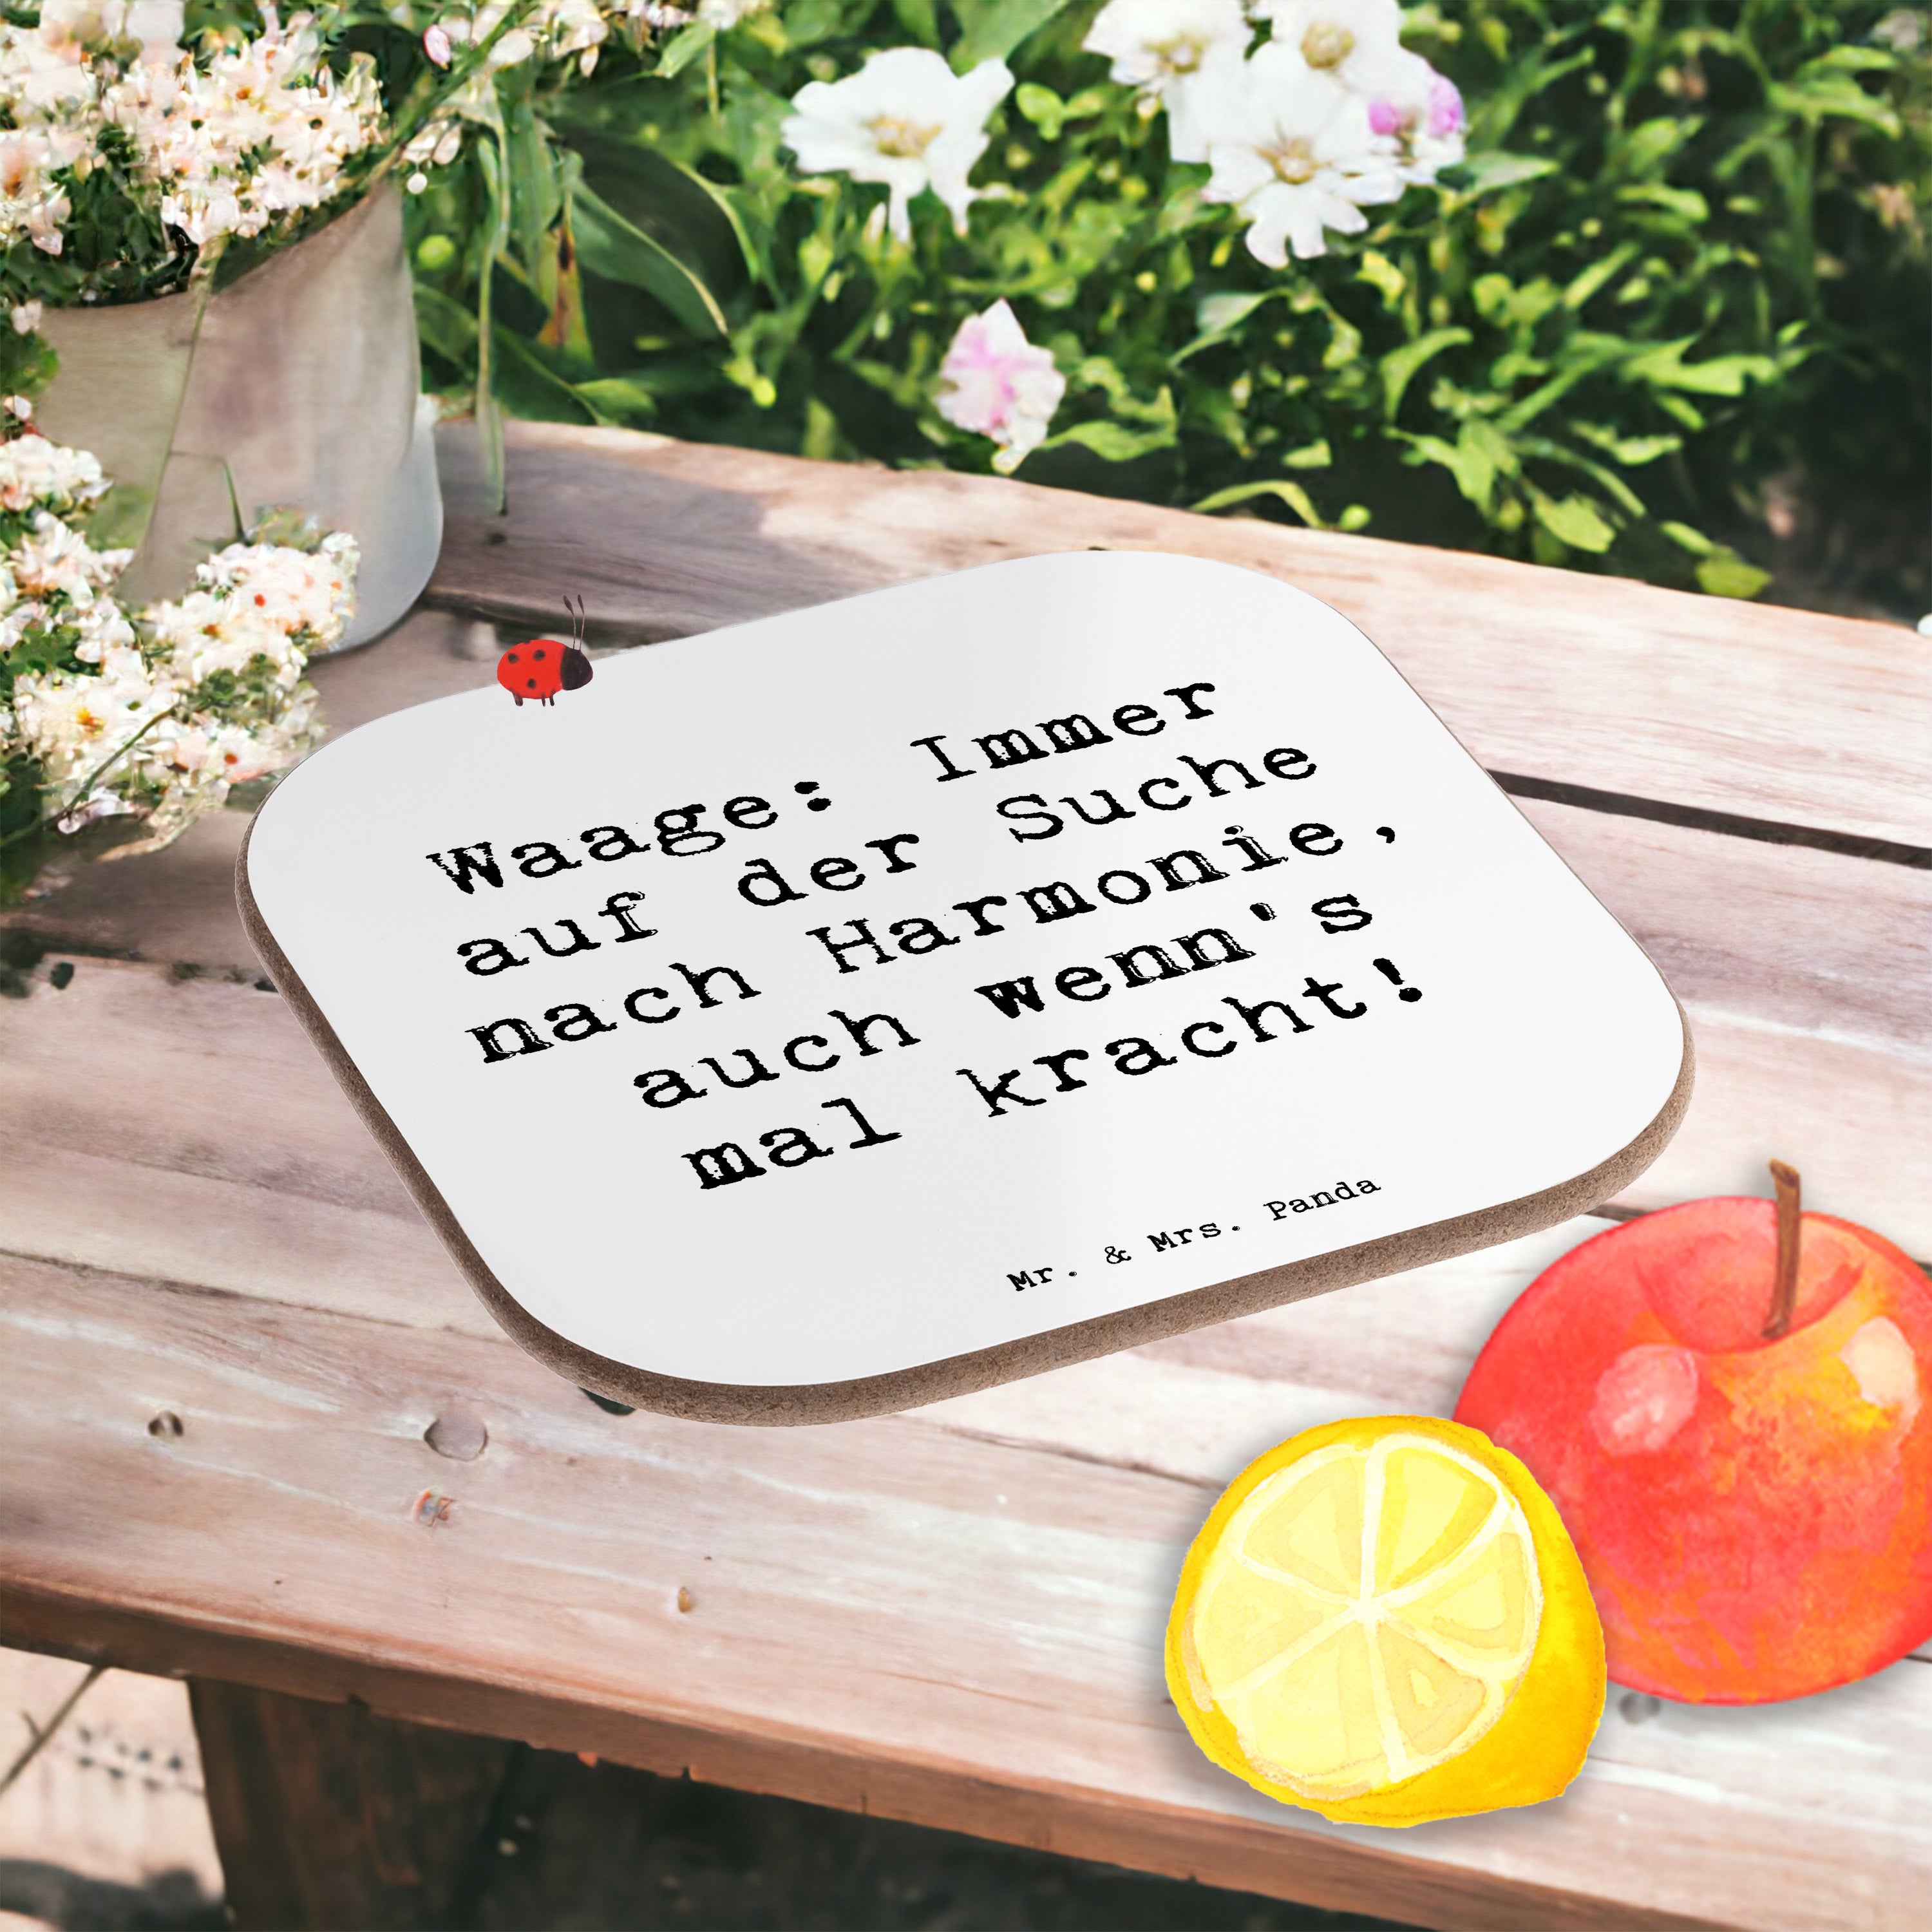 Waage: Immer
auf der Suche
nach Harmonie,
auch wenn's
mal kracht!
Mr. & Mrs. Panda